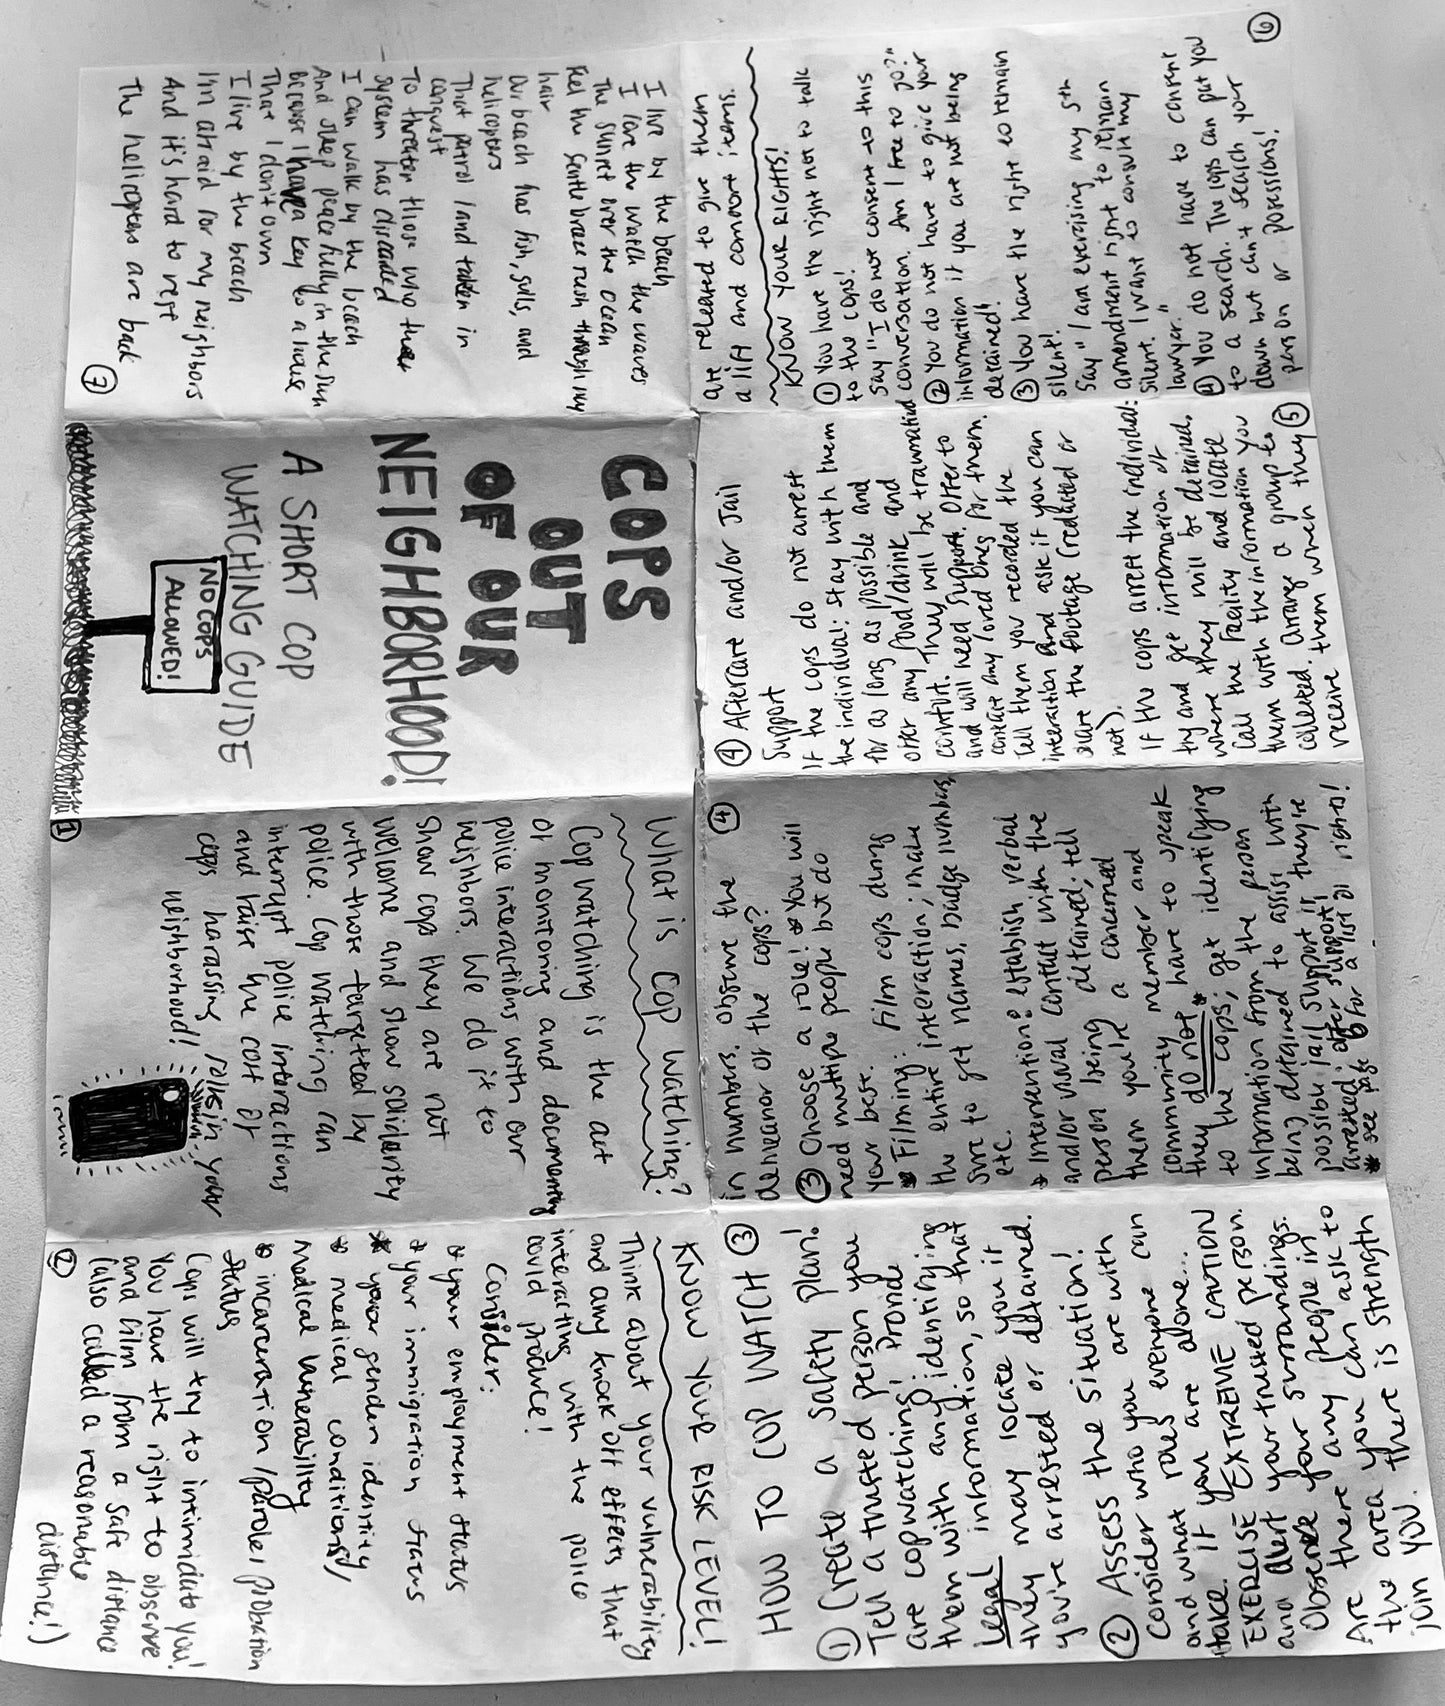 COPS
OUT
OF OUR
NEIGHBORHOOD!
A SHORT COP
WATCHING GUIDE
NO COPS
ALLOWED!
1
What is Cop Watching?
Cop watching is the act
of monitoring and documenting
police interactions with our
neighbors. We do it to
show cops they are not
welcome and show solidarity
with those targetted by
police. Cop watching can
interrupt police interactions
and raise the cost of
cops harassing folks in your
neighborhood!
KNOW YOUR RISK LEVEL!
Think about your vulnerability
and any knock off effects that
interacting with the police
could produce!
Consider:
* your employment status
* your immigration status
* your gender identity
* medical conditions/
medical vulnerability
* incarceration/parole/probation
status
Cops will try to intimidate you!
You have the right to observe
and film from a safe distance
(also called a reasonable
distance!)
2
HOW TO COP WATCH 3
① Create a safety plan!
Tell a trusted person you
are copwatching! Provide
them with any identifying
legal information, so that
they may locate you if
you're arrested or detained.
② Assess the situation!
Consider who you are with
and what roles everyone can
take. If you are alone...
EXERCISE EXTREME CAUTION
and alert your trusted person.
Observe your surroundings.
Are there any people in
the area you can ask to
join you. there is strength
in numbers. Observe the
demeanor of the cops?
4
③ Choose a role! * You will
need multiple people but do
your best.
* Filming: film cops during
the entire interaction; make
sure to get names, badge numbers,
etc.
* Intervention: establish verbal
and/or visual contact with the
person being detained; tell
them you're a concerned
community member and
they do not* have to speak
to the cops; get identifying
information from the person
being detained to assist with
possible jail support if they're
arrested; offer support!
* see page 6 for a list of rights!
④ Aftercare and/or Jail
Support
If the cops do not arrest
the individual: stay with them
for as long as possible and
offer any food/drink and
comfort. They will be traumatized
and will need support. Offer to
contact any loved ones for them.
Tell them you recorded the
interaction and ask if you can
share the footage (redacted or
not).
If the cops arrest the individual:
try and get information of
where they will be detained.
Call the facility and locate
them with the information you
collected. Arrange a group to
receive them when they 5
are released to give them
a lift and comfort items.
KNOW YOUR RIGHTS!
① You have the right not to talk
to the cops!
Say "I do not consent to this
conversation. Am I free to go?"
② You do not have to give your
information if you are not being
detained!
③ You have the right to remain
silent!
Say "I am exercising my 5th
amendment right to remain
silent. I want to consult my
lawyer."
④ You do not have to consent
to a search. The cops can pat you
down but can't search your
person or posessions!
6
I live by the beach
I love the watch the waves
The sunset over the ocean
Feel the gentle breeze rush through my
hair
Our beach has fish, gulls, and
helicopters
That patrol land taken in
conquest
To threaten those who the
system has discarded
I can walk by the beach
And sleep peacefully in the sun
Because I have a key to a house
That I don't own
I live by the beach
I'm afraid for my neighbors
And it's hard to rest
The helicopters are back
7